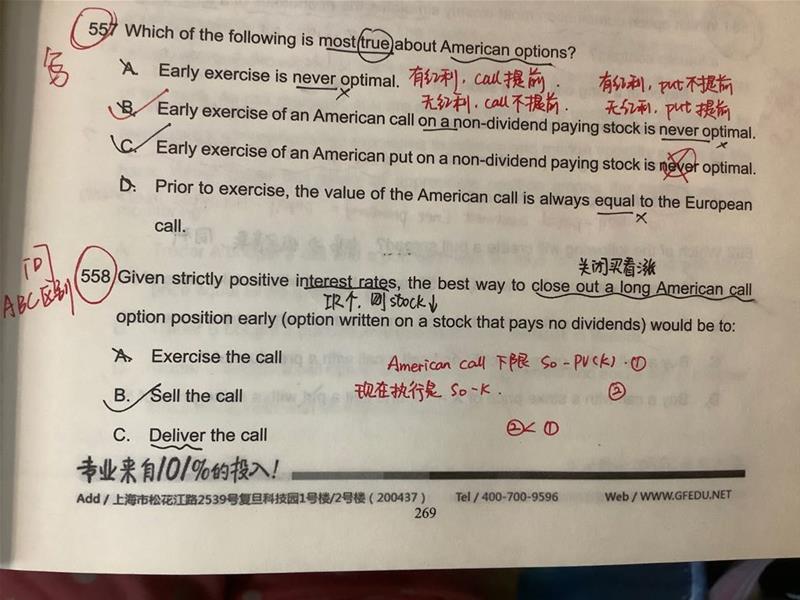 557 Which of the following is most true about American options?
A. Early exercise is never optimal. 有红利, call 提前. 有红利, put 不提前
无红利, call 不提前. 无红利, put 提前
B. Early exercise of an American call on a non-dividend paying stock is never optimal.
C. Early exercise of an American put on a non-dividend paying stock is never optimal.
D. Prior to exercise, the value of the American call is always equal to the European
call.
问
ABC区别
关闭买看涨
558 Given strictly positive interest rates, the best way to close out a long American call
IR个. 则 stock↓
option position early (option written on a stock that pays no dividends) would be to:
A. Exercise the call American call 下限 So-PV(K). ①
B. Sell the call 现在执行是 So-K. ②
C. Deliver the call ②< ①
专业来自101%的投入!
Add / 上海市松花江路2539号复旦科技园1号楼/2号楼（200437） Tel / 400-700-9596 Web / WWW.GFEDU.NET
269